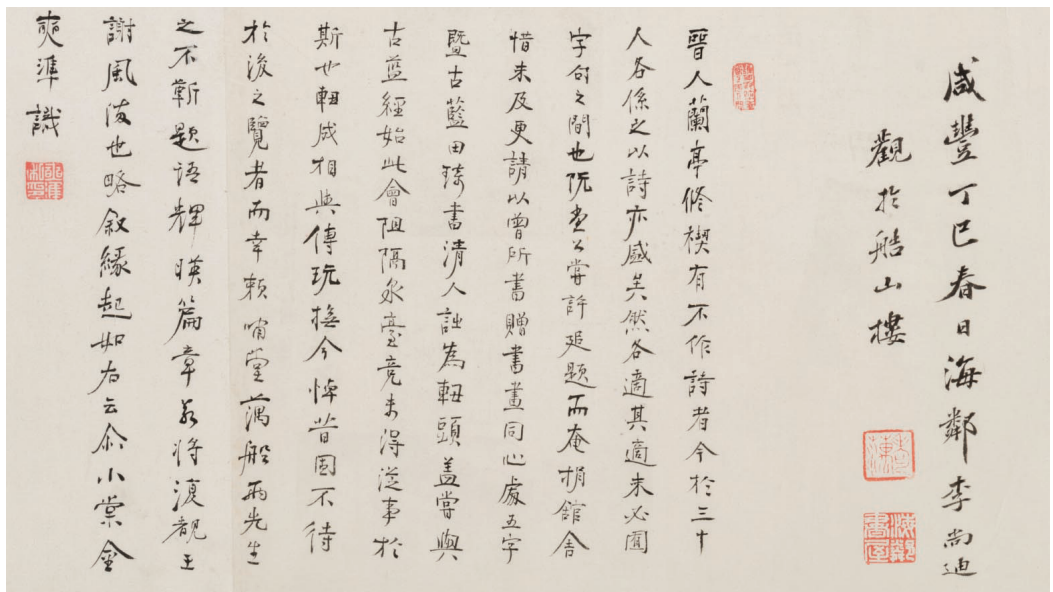 咸豐丁巳春日海鄰李尚迪
觀於船山樓
晉人蘭亭脩禊有不作詩者今於三十
人各係之以詩亦盛矣然各適其適未必圉
字句之間也阮堂公嘗許延題而奄捐館舍
惜未及更請以曾所書贈書畫同心處五字
暨古藍田琦書清人詠為軸頭蓋嘗與
古藍經始此會阻隔泉臺竟未得從事於
斯也軸成相與傳玩撫今悼昔固不待
於後之覽者而幸賴啇堂藕船兩先生
之不靳題語輝暎篇章若將復覩王
謝風流也略叙緣起如右云尒小棠金
奭準識